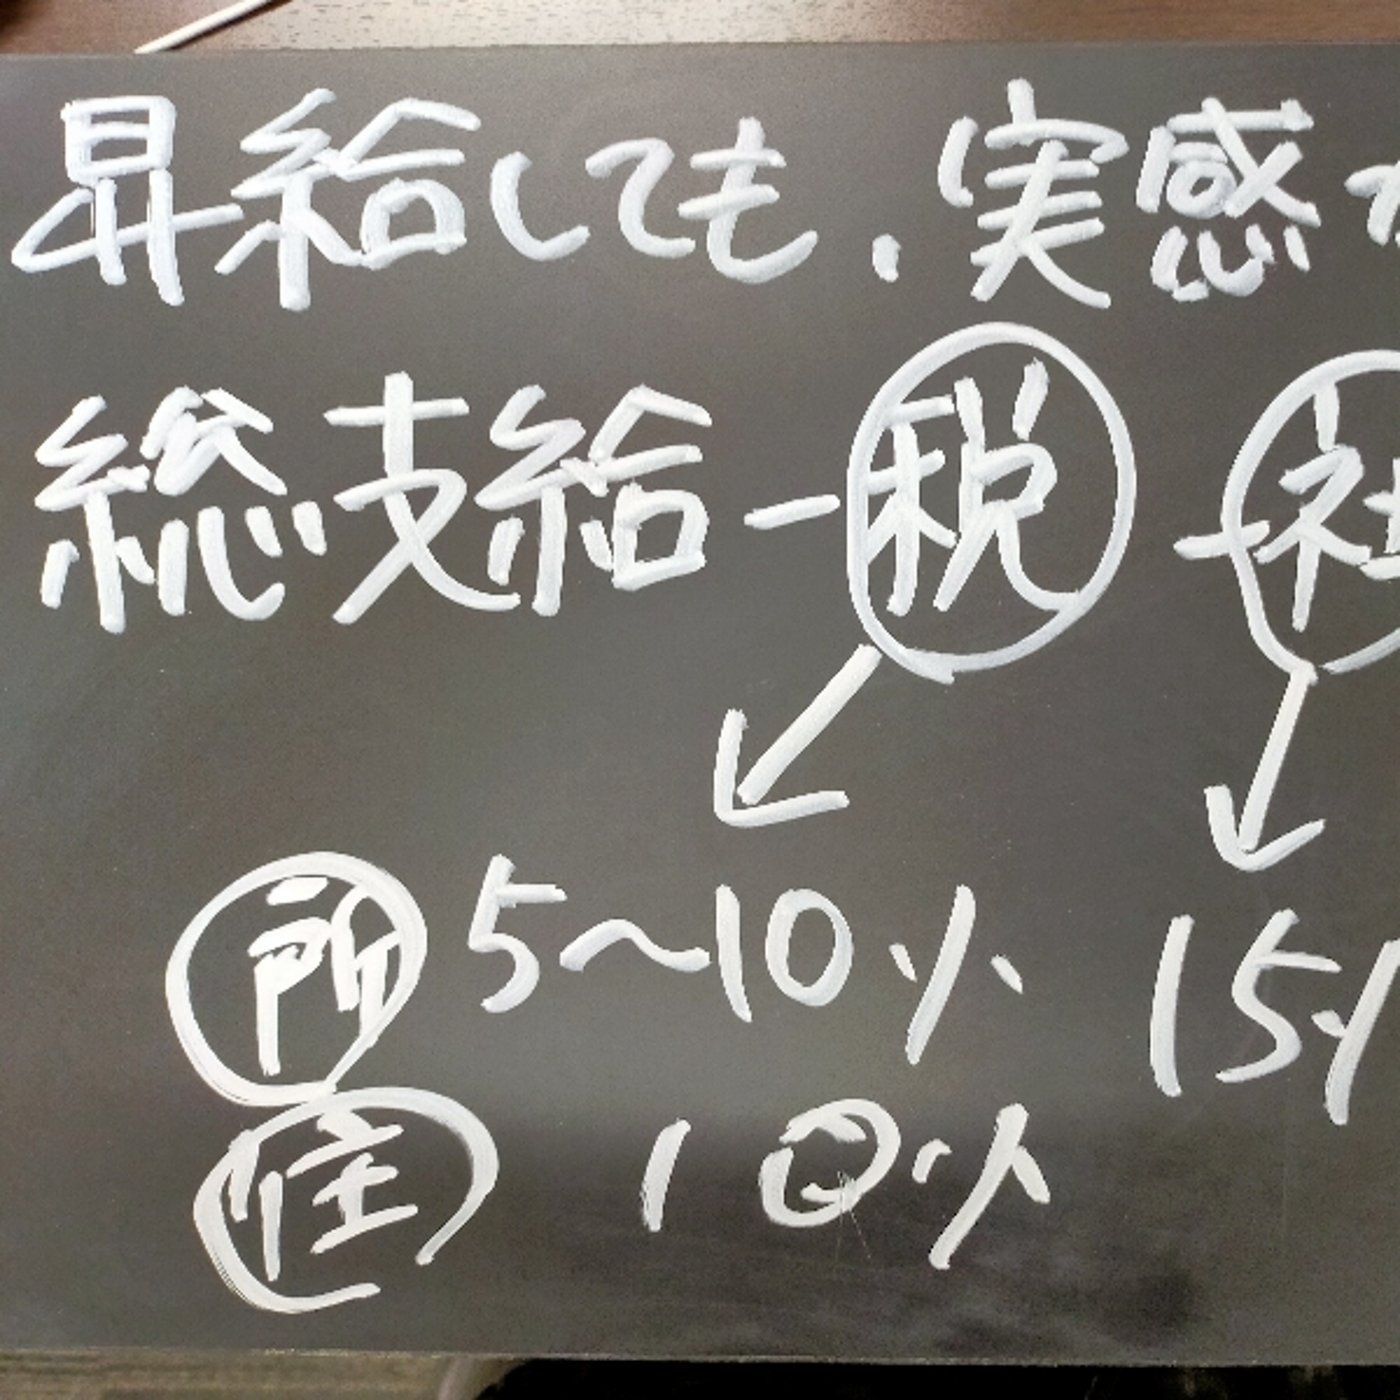 昇給しても、実感
総支給-税-社
所 5~10% 15%
住 10%